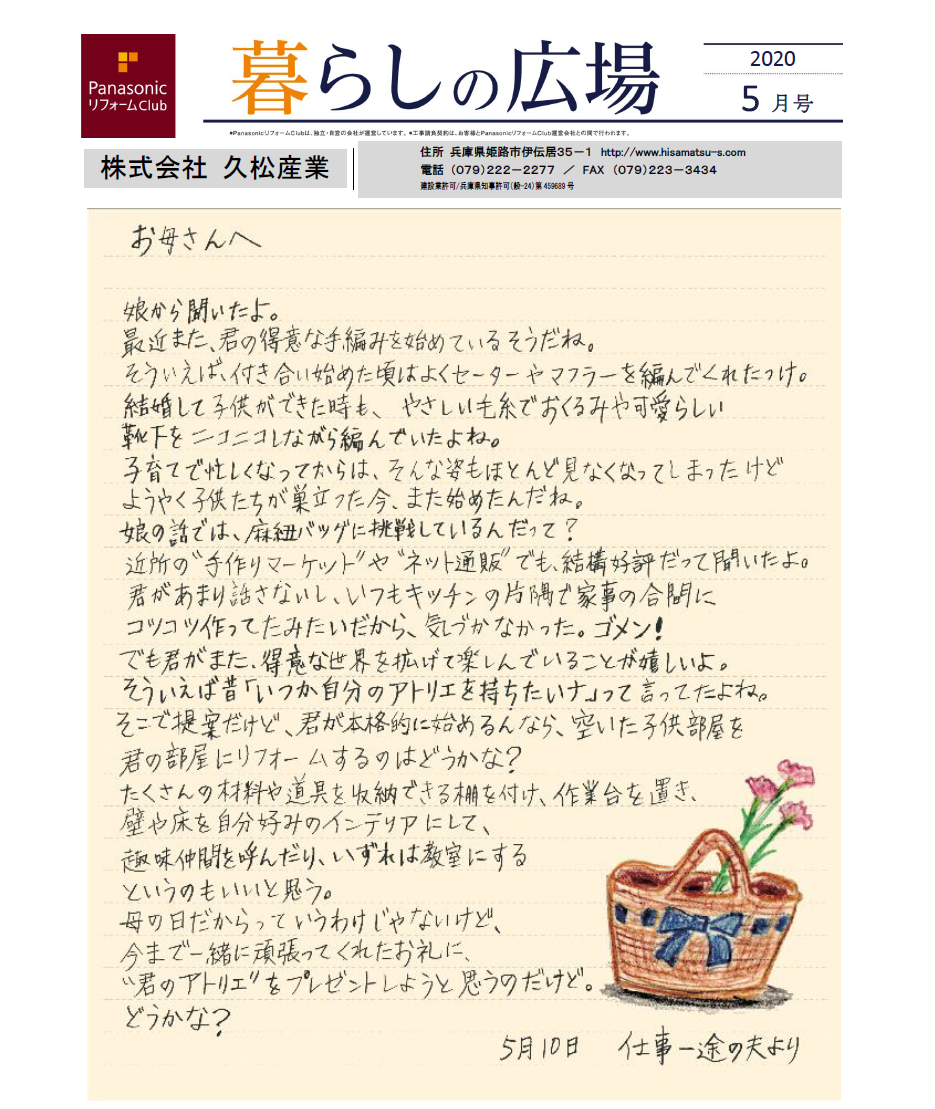 Panasonic
リフォームClub
暮らしの広場
2020
5 月号
●PanasonicリフォームClubは、独立・自営の会社が運営しています。●工事請負契約は、お客様とPanasonicリフォームClub運営会社との間で行われます。
株式会社 久松産業
住所 兵庫県姫路市伊伝居35－1 http://www.hisamatsu-s.com
電話 (079)222－2277 ／ FAX (079)223－3434
建設業許可/兵庫県知事許可(般-24)第459689号
お母さんへ
娘から聞いたよ。
最近また、君の得意な手編みを始めているそうだね。
そういえば、付き合い始めた頃はよくセーターやマフラーを編んでくれたっけ。
結婚して子供ができた時も、やさしい毛糸でおくるみや可愛らしい
靴下をニコニコしながら編んでいたよね。
子育てで忙しくなってからは、そんな姿もほとんど見なくなってしまったけど
ようやく子供たちが巣立った今、また始めたんだね。
娘の話では、麻紐バッグに挑戦しているんだって？
近所の"手作りマーケット"や"ネット通販"でも、結構好評だって聞いたよ。
君があまり話さないし、いつもキッチンの片隅で家事の合間に
コツコツ作ってたみたいだから、気づかなかった。ゴメン！
でも君がまた、得意な世界を拡げて楽しんでいることが嬉しいよ。
そういえば昔「いつか自分のアトリエを持ちたいナ」って言ってたよね。
そこで提案だけど、君が本格的に始めるんなら、空いた子供部屋を
君の部屋にリフォームするのはどうかな？
たくさんの材料や道具を収納できる棚を付け、作業台を置き、
壁や床を自分好みのインテリアにして、
趣味仲間を呼んだり、いずれは教室にする
というのもいいと思う。
母の日だからっていうわけじゃないけど、
今まで一緒に頑張ってくれたお礼に、
"君のアトリエ"をプレゼントしようと思うのだけど。
どうかな？
5月10日 仕事一途の夫より